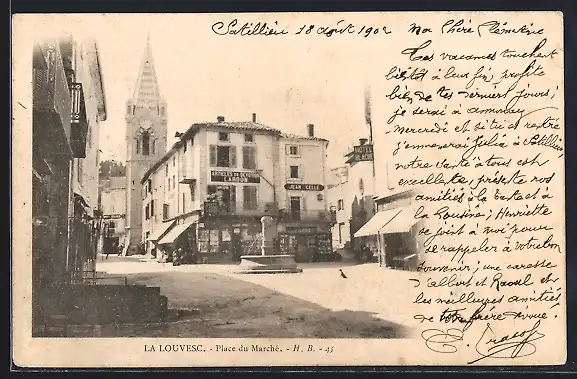 Satillieu 18 août 1902
Ma Chère Clémentine
Ces vacances touchent
bientôt à leur fin, profite
bien de tes derniers jours;
je serai à Annonay
mercredi et si tu es rentrée
j'emmènerai Julia à Satillieu
notre santé à tous est
excellente, présente nos
amitiés à la tante et à
la Cousine; Henriette
se joint à moi pour
se rappeler à votre bon
souvenir; une caresse
d'Albert et Raoul et
les meilleures amitiés
de votre frère dévoué.
ARTICLES DE DEVOTION
LARGON
ARTICLES DE DEVOTION
LARGON
JEAN CELLE
HOTEL
LA LOUVESC. - Place du Marché. - H. B. - 45